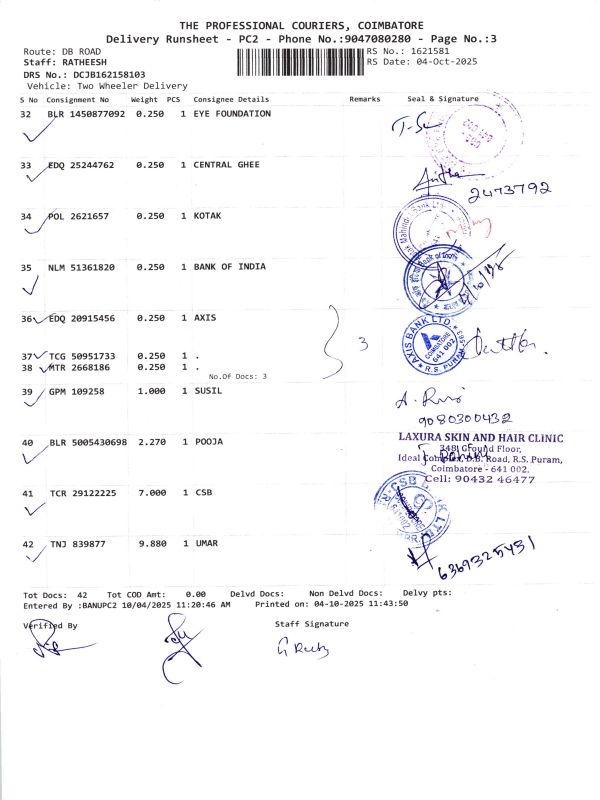 THE PROFESSIONAL COURIERS, COIMBATORE
Delivery Runsheet - PC2 - Phone No.:9047080280 - Page No.:3
Route: DB ROAD RS No.: 1621581
Staff: RATHEESH RS Date: 04-Oct-2025
DRS No.: DCJB162158103
Vehicle: Two Wheeler Delivery
S No Consignment No Weight PCS Consignee Details Remarks Seal & Signature
32 BLR 1450877092 0.250 1 EYE FOUNDATION
33 EDQ 25244762 0.250 1 CENTRAL GHEE
2473792
34 POL 2621657 0.250 1 KOTAK
35 NLM 51361820 0.250 1 BANK OF INDIA
36 EDQ 20915456 0.250 1 AXIS
AXIS BANK LTD.
COIMBATORE
641 002
R.S. PURAM
3
37 TCG 50951733 0.250 1 .
38 MTR 2668186 0.250 1 .
No.Of Docs: 3
39 GPM 109258 1.000 1 SUSIL
9080300432
40 BLR 5005430698 2.270 1 POOJA
LAXURA SKIN AND HAIR CLINIC
348, Ground Floor,
Ideal Complex, D.B. Road, R.S. Puram,
Coimbatore - 641 002.
Cell: 90432 46477
41 TCR 29122225 7.000 1 CSB
CSB BANK LTD
42 TNJ 839877 9.880 1 UMAR
6369325431
Tot Docs: 42 Tot COD Amt: 0.00 Delvd Docs: Non Delvd Docs: Delvy pts:
Entered By :BANUPC2 10/04/2025 11:20:46 AM Printed on: 04-10-2025 11:43:50
Verified By Staff Signature